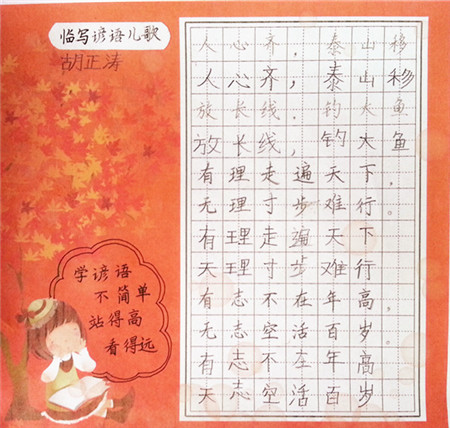 临写谚语儿歌
胡正涛
人心齐，泰山移
人心齐，泰山移
放长线，钓大鱼
放长线，钓大鱼
有理走遍天下，
无理寸步难行。
有理走遍天下
天理寸步难行
有志不在年高，
无志空活百岁。
有志不在年高
天志空活百岁
学谚语
不简单
站得高
看得远